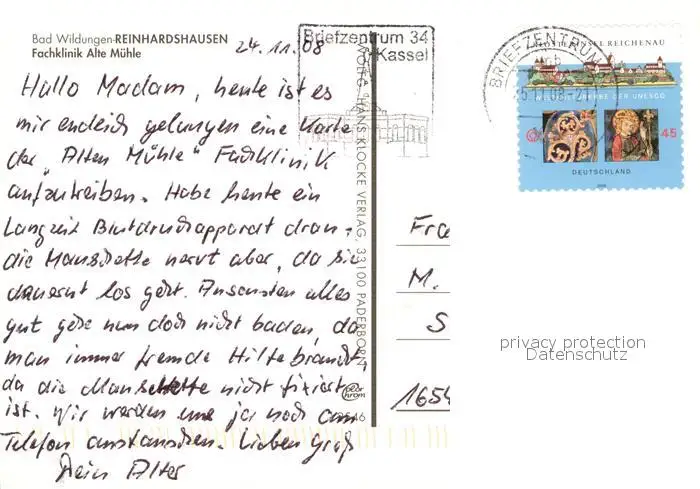 Bad Wildungen-REINHARDSHAUSEN
Fachklinik Alte Mühle
24.11.08
Hallo Madam, heute ist es
mir endlich gelungen eine Karte
der "Alten Mühle" Fachklinik
aufzutreiben. Habe heute ein
Langzeit Blutdruckapparat dran,
die Manschette nervt aber, da sie
dauernt los geht. Ansonsten alles
gut gehe nun doch nicht baden, da
man immer fremde Hilfe braucht,
da die Manschette nicht fixiert
ist. Wir werden uns ja noch am
Telefon austauschen. Lieben Gruß
Dein Alter
Briefzentrum 34
Kassel
WOLFG. HANS KLOCKE VERLAG, 33100 PADERBORN
BRIEFZENTRUM
KLOSTERINSEL REICHENAU
WELTKULTURERBE DER UNESCO
45
DEUTSCHLAND
2008
M.
S
1654
privacy protection
Datenschutz